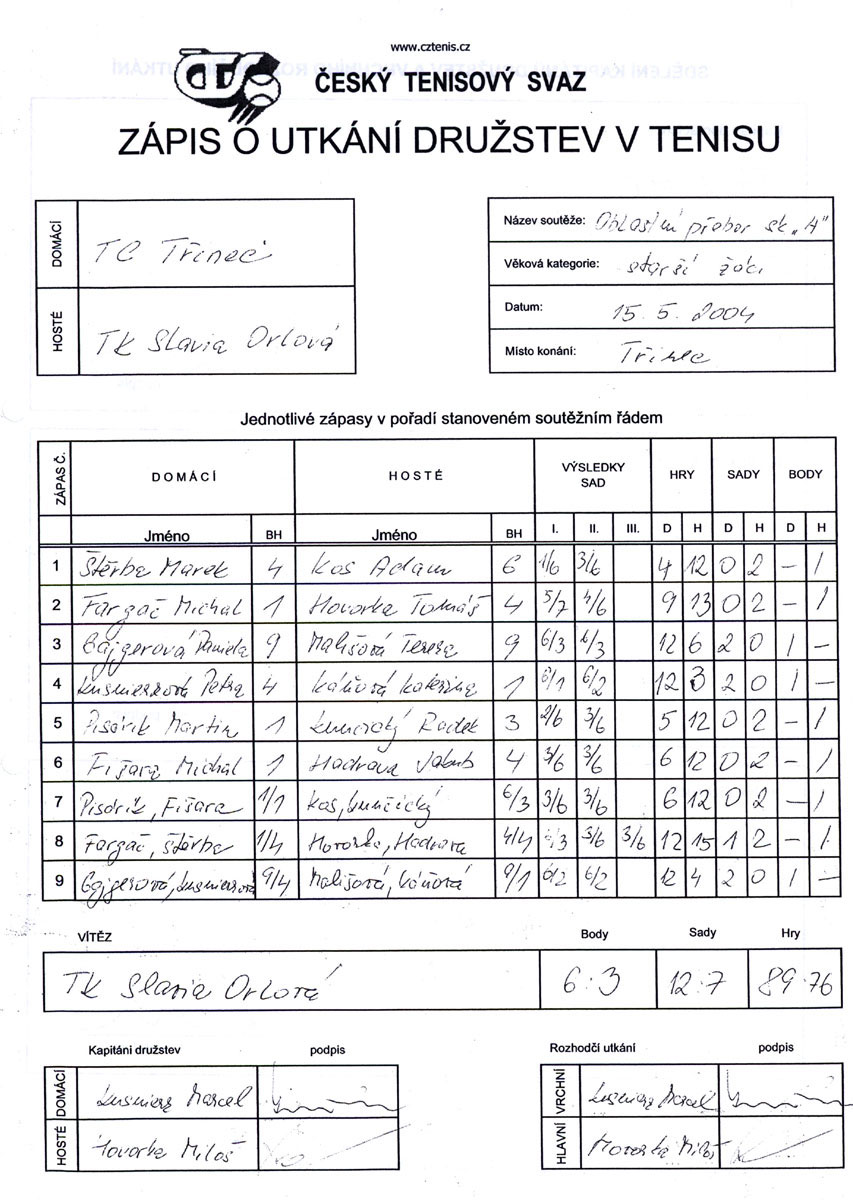 www.cztenis.cz
ČESKÝ TENISOVÝ SVAZ
ZÁPIS O UTKÁNÍ DRUŽSTEV V TENISU
DOMÁCÍ TC Třinec
HOSTÉ TK Slavia Orlová
Název soutěže: Oblastní přebor sk. „A"
Věková kategorie: starší žáci
Datum: 15. 5. 2004
Místo konání: Třinec
Jednotlivé zápasy v pořadí stanoveném soutěžním řádem
ZÁPAS Č. DOMÁCÍ HOSTÉ VÝSLEDKY SAD HRY SADY BODY
Jméno BH Jméno BH I. II. III. D H D H D H
1 Štěrba Marek 4 Kos Adam 6 1/6 3/6 4 12 0 2 – 1
2 Fargač Michal 1 Hovorka Tomáš 4 5/7 4/6 9 13 0 2 – 1
3 Gajgerová Daniela 9 Mališová Tereza 9 6/3 6/3 12 6 2 0 1 –
4 Petra 4 Káňová Kateřina 1 6/1 6/2 12 3 2 0 1 –
5 Pisórik Martin 1 Radek 3 2/6 3/6 5 12 0 2 – 1
6 Fišara Michal 1 Hadrava Jakub 4 3/6 3/6 6 12 0 2 – 1
7 Pisórik, Fišara 1/1 Kos, 6/3 3/6 3/6 6 12 0 2 – 1
8 Fargač, Štěrba 1/4 Hovorka, Hadrava 4/4 6/3 3/6 3/6 12 15 1 2 – 1
9 Gajgerová, 9/4 Mališová, Káňová 9/1 6/2 6/2 12 4 2 0 1 –
VÍTĚZ Body Sady Hry
TK Slavia Orlová 6:3 12:7 89:76
Kapitáni družstev podpis Rozhodčí utkání podpis
DOMÁCÍ Marcel VRCHNÍ Marcel
HOSTÉ Hovorka Miloš HLAVNÍ Hovorka Miloš